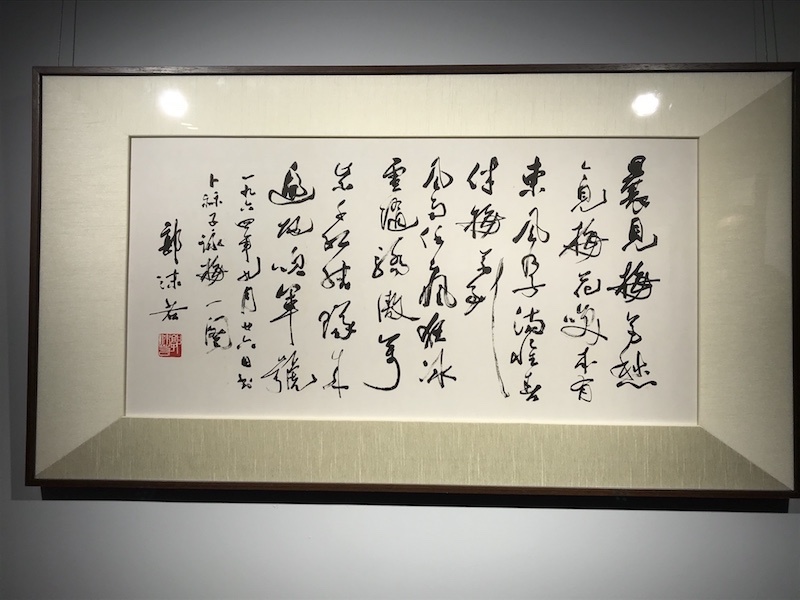 曩見梅花愁
今見梅花笑本有
東風孕滿懷春
伴梅花到
風雨任瘋狂冰
雪隨驕傲萬
紫千紅結隊來
遍地吹軍號
一九六四年九月廿六日書
卜算子詠梅一闋
郭沫若